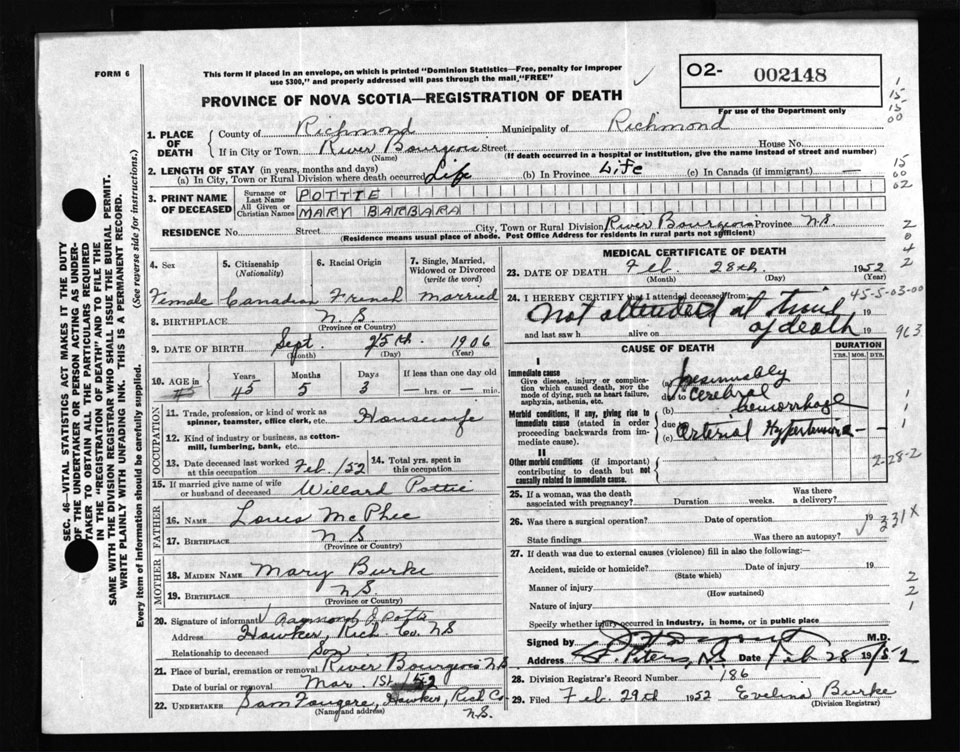 FORM 6
This form if placed in an envelope, on which is printed "Dominion Statistics—Free, penalty for improper
use $300," and properly addressed will pass through the mail "FREE"
O2- 002148
For use of the Department only
PROVINCE OF NOVA SCOTIA—REGISTRATION OF DEATH
1. PLACE OF DEATH
County of Richmond Municipality of Richmond
If in City or Town River Bourgeois Street House No.
(Name) (If death occurred in a hospital or institution, give the name instead of street and number)
2. LENGTH OF STAY (in years, months and days)
(a) In City, Town or Rural Division where death occurred Life (b) In Province Life (c) In Canada (if immigrant)
3. PRINT NAME OF DECEASED
Surname or Last Name POTTIE
All Given or Christian Names MARY BARBARA
RESIDENCE No. Street City, Town or Rural Division River Bourgeois Province N.S.
(Residence means usual place of abode. Post Office Address for residents in rural parts not sufficient)
4. Sex 5. Citizenship (Nationality) 6. Racial Origin 7. Single, Married, Widowed or Divorced (write the word)
Female Canadian French Married
8. BIRTHPLACE N.S.
(Province or Country)
9. DATE OF BIRTH Sept. 25th. 1906
(Month) (Day) (Year)
10. AGE in Years Months Days If less than one day old
45 5 3 hrs. or min.
OCCUPATION
11. Trade, profession, or kind of work as spinner, teamster, office clerk, etc. Housewife
12. Kind of industry or business, as cotton-mill, lumbering, bank, etc.
13. Date deceased last worked at this occupation Feb./52 14. Total yrs. spent in this occupation
15. If married give name of wife or husband of deceased Willard Pottie
FATHER
16. NAME Louis McPhee
17. BIRTHPLACE N.S.
(Province or Country)
MOTHER
18. MAIDEN NAME Mary Burke
19. BIRTHPLACE N.S.
(Province or Country)
20. Signature of informant Raymond J. Pottie
Address Hawker, Rich. Co. N.S
Relationship to deceased Son
21. Place of burial, cremation or removal River Bourgeois N.S
Date of burial or removal Mar. 1st 1952
22. UNDERTAKER Sam Fougere, Hawker, Rich Co.
(Name and address) N.S.
MEDICAL CERTIFICATE OF DEATH
23. DATE OF DEATH Feb. 28th, 1952
(Month) (Day) (Year)
24. I HEREBY CERTIFY that I attended deceased from 19
Not attended at time of death
and last saw h alive on 19
CAUSE OF DEATH
DURATION
YRS. MOS. DYS.
I
Immediate cause
Give disease, injury or complication which caused death, not the mode of dying, such as heart failure, asphyxia, asthenia, etc.
(a) Presumably
due to Cerebral
(b) hemorrhage
due to
(c) Arterial Hypertension
Morbid conditions, if any, giving rise to immediate cause (stated in order proceeding backwards from immediate cause).
II
Other morbid conditions (if important) contributing to death but not causally related to immediate cause.
25. If a woman, was the death associated with pregnancy? Duration weeks. Was there a delivery?
26. Was there a surgical operation? Date of operation 19
State findings Was there an autopsy?
27. If death was due to external causes (violence) fill in also the following:—
Accident, suicide or homicide? Date of injury 19
(State which)
Manner of injury
(How sustained)
Nature of injury
Specify whether injury occurred in industry, in home, or in public place
Signed by M.D.
Address St. Peters, N.S Date Feb 28 1952
28. Division Registrar's Record Number 186
29. Filed Feb. 29th 1952 Evelina Burke
(Division Registrar)
SEC. 46—VITAL STATISTICS ACT MAKES IT THE DUTY
OF THE UNDERTAKER OR PERSON ACTING AS UNDER-
TAKER TO OBTAIN ALL THE PARTICULARS REQUIRED
IN THE "REGISTRATION OF DEATH" AND TO FILE THE
SAME WITH THE DIVISION REGISTRAR WHO SHALL ISSUE THE BURIAL PERMIT.
WRITE PLAINLY WITH UNFADING INK. THIS IS A PERMANENT RECORD.
Every item of information should be carefully supplied. (See reverse side for instructions.)
1
15
15
00
15
00
02
2
0
4
2
45-5-03-00
963
1
1
1
2-28-2
331X
2
2
1